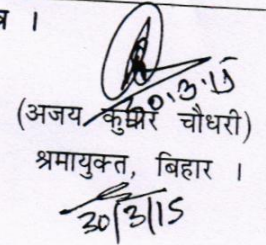 व ।
30.3.15
(अजय कुमार चौधरी)
श्रमायुक्त, बिहार ।
30/3/15